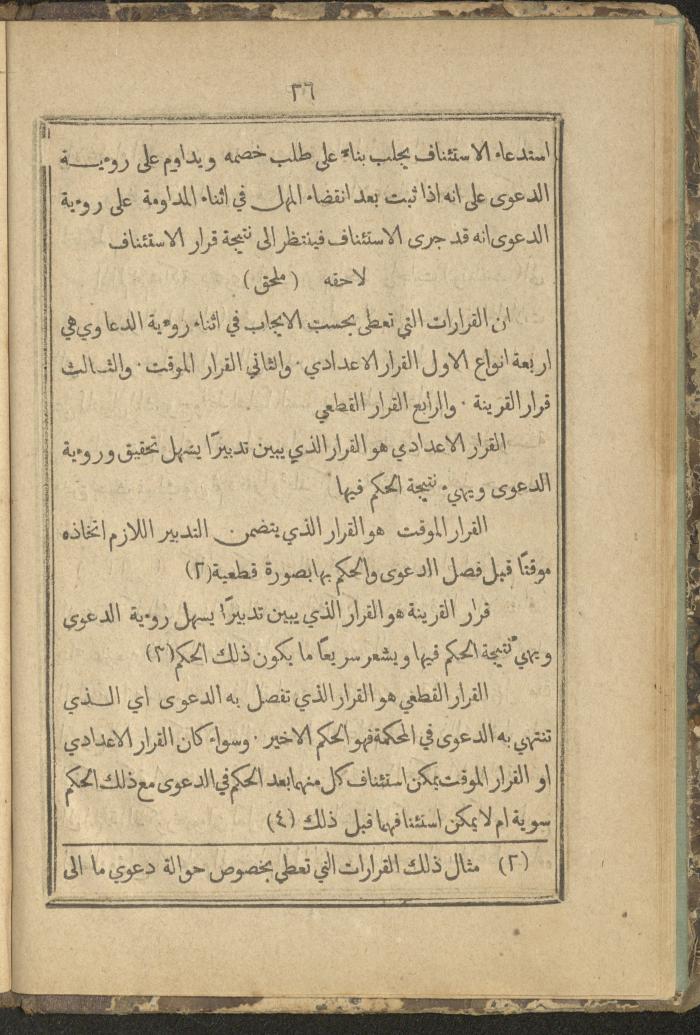 ٢٦
استدعاء الاستئناف يجلب بناءً على طلب خصمه ويداوم على روءيـــة
الدعوى على انه اذا ثبت بعد انقضاء المهل في اثناء المداومة على روءية
الدعوى انه قد جرى الاستئناف فينتظر الى نتيجة قرار الاستئناف
لاحقه (ملحق)
ان القرارات التي تعطى بحسب الايجاب في اثناء روءية الدعاوي هي
اربعة انواع الاول القرار الاعدادي · والثاني القرار الموقت · والثــالث
قرار القرينة · والرابع القرار القطعي
القرار الاعدادي هو القرار الذي يبين تدبيرًا يسهل تحقيق وروءية
الدعوى ويهيء نتيجة الحكم فيها
القرار الموقت هو القرار الذي يتضمن التدبير اللازم اتخاذه
موقتًا قبل فصل الدعوى والحكم بها بصورة قطعية (٢)
قرار القرينة هو القرار الذي يبين تدبيرًا يسهل روءية الدعوى
ويهيء نتيجة الحكم فيها ويشعر سريعًا ما يكون ذلك الحكم (٣)
القرار القطعي هو القرار الذي تفصل به الدعوى اي الــذي
تنتهي به الدعوى في المحكمة فهو الحكم الاخير · وسواء كان القرار الاعدادي
او القرار الموقت يمكن استئناف كل منهما بعد الحكم في الدعوى مع ذلك الحكم
سوية ام لا يمكن استئنافهما قبل ذلك (٤)
(٢) مثال ذلك القرارات التي تعطى بخصوص حوالة دعوي ما الى